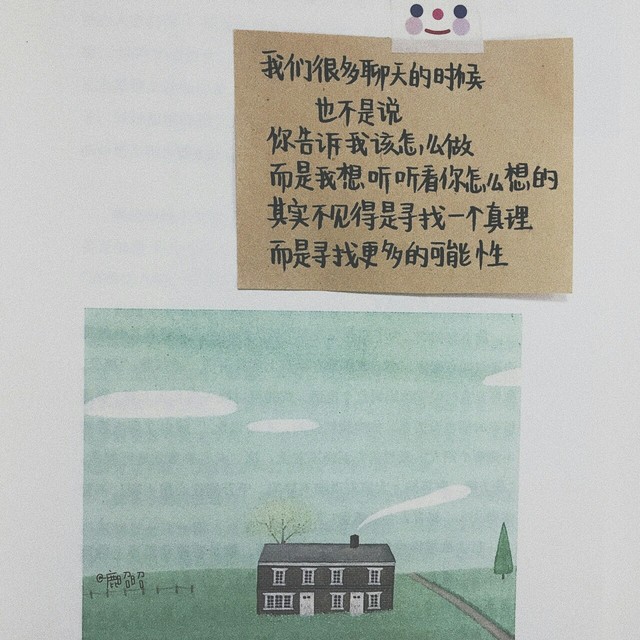 我们很多聊天的时候
也不是说
你告诉我该怎么做
而是我想听听看你怎么想的
其实不见得是寻找一个真理
而是寻找更多的可能性